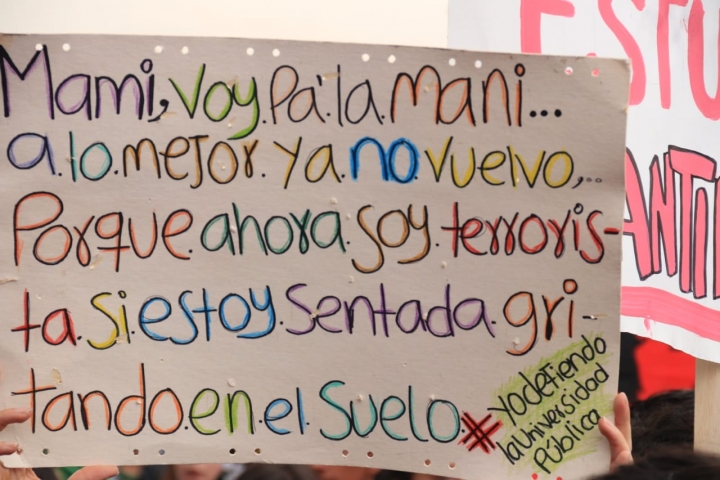 Mami, voy. Pa'.la. mani...
a.lo.mejor. ya. no. vuelvo,...
Porque. ahora. soy. terroris-
ta. Si. estoy. sentada. gri-
tando. en. el. suelo.
#yodefiendo
laUniversidad
Pública
ESTU
ANTI